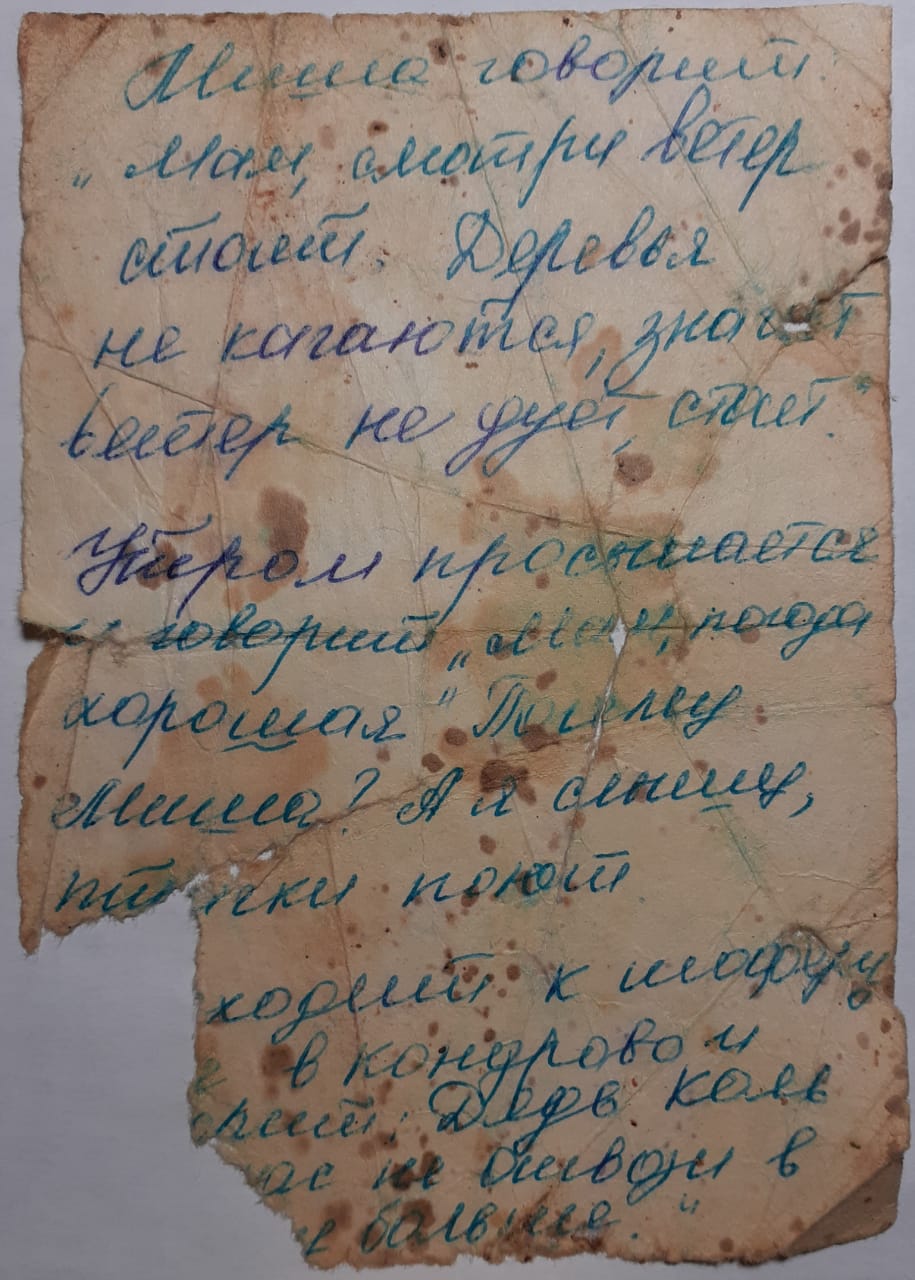 Миша говорит:
„Мам, смотри ветер
стоит. Деревья
не качаются, значит
ветер не дует, стоит."
Утром просыпается
и говорит „Мам, погода
хорошая" Почему
Миша? А я слышу,
птички поют
ходит к шофёру
в Кондрово и
Дядь Коль
не вывози в
больше."